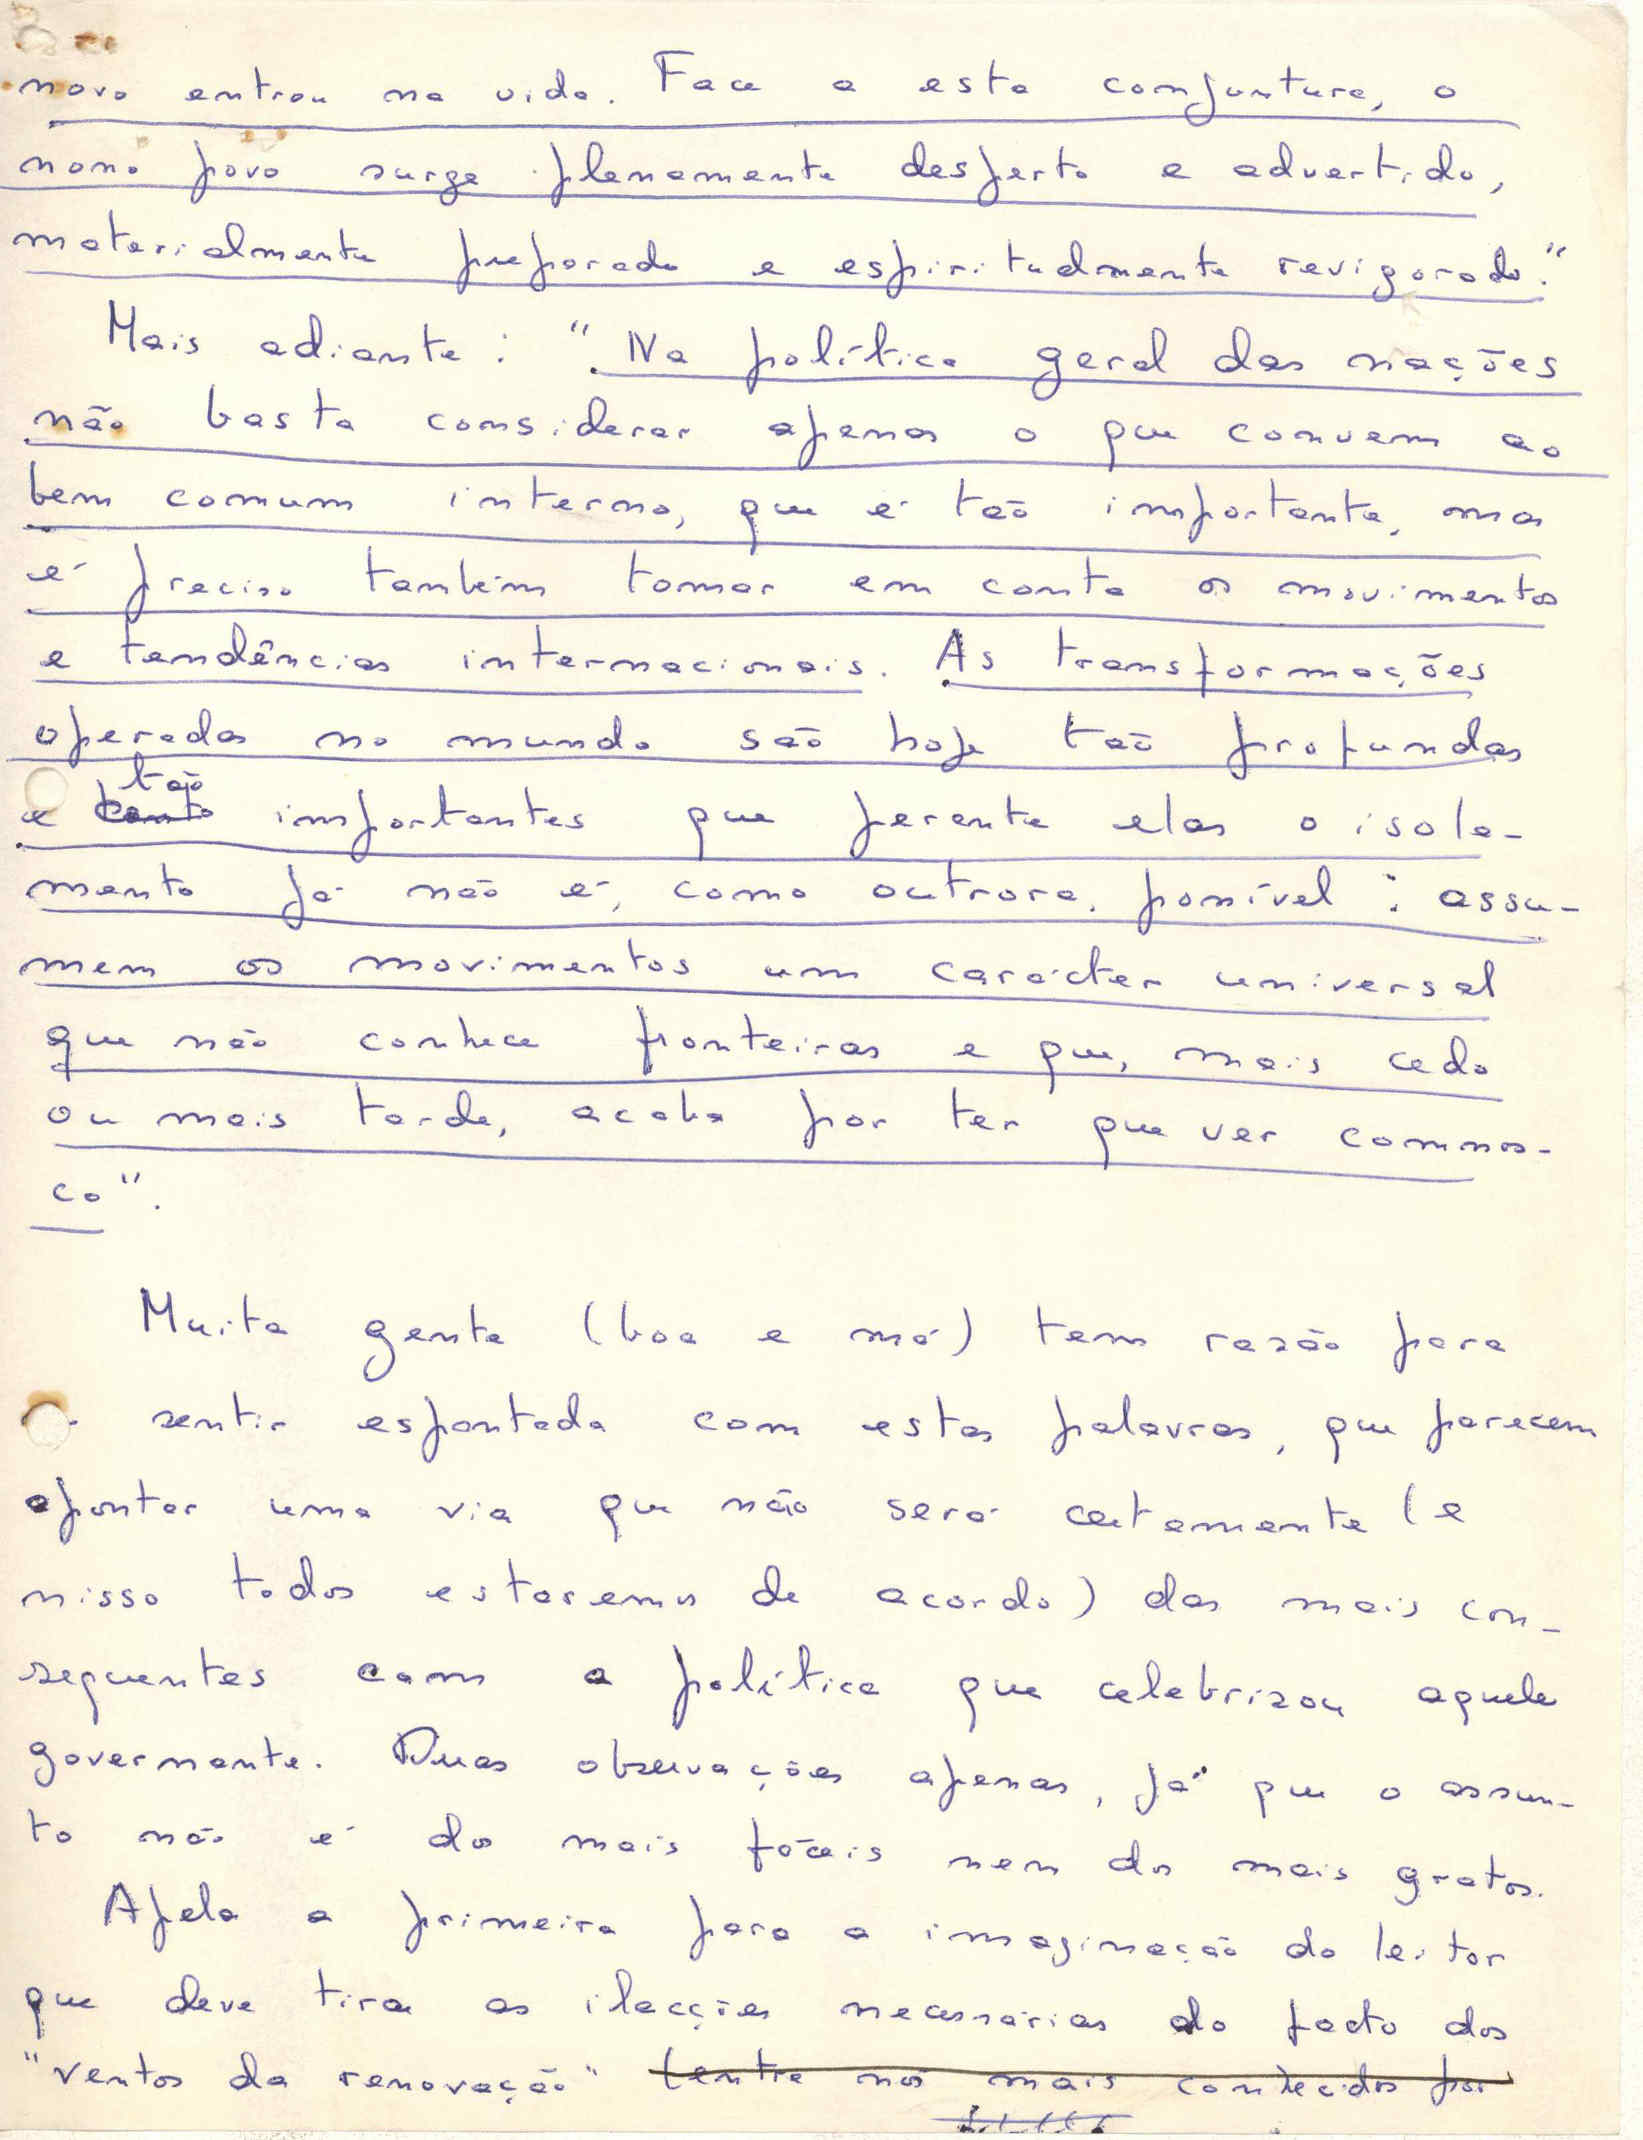 novo entrou na vida. Face a esta conjuntura, o
nosso povo surge plenamente desperto e advertido,
materialmente preparado e espiritualmente revigorado."
Mais adiante: "Na política geral das nações
não basta considerar apenas o que convem ao
bem comum interno, que é tão importante, mas
é preciso também tomar em conta os movimentos
e tendências internacionais. As transformações
operadas no mundo são hoje tão profundas
tão
e tanto importantes que perante elas o isola-
mento já não é, como outrora, possível: assu-
mem os movimentos um carácter universal
que não conhece fronteiras e que, mais cedo
ou mais tarde, acaba por ter que ver connos-
co".
Muita gente (boa e má) tem razão para
sentir espantada com estas palavras, que parecem
apontar uma via que não será certamente (e
nisso todos estaremos de acordo) das mais con-
sequentes com a política que celebrizou aquele
governante. Duas observações apenas, já que o assun-
to não é dos mais fáceis nem dos mais gratos.
Apela a primeira para a imaginação do leitor
que deve tirar as ilacções necessárias do facto dos
"ventos da renovação" (entre nós mais conhecidos por